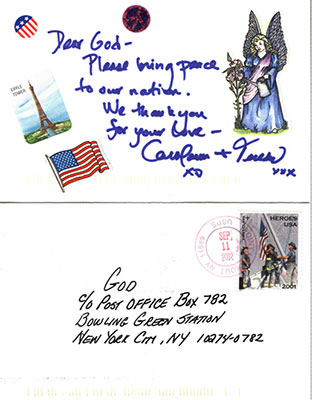 Dear God-
Please bring peace
to our nation.
We thank you
for your love-
+ Teresa
XO XXX
EIFLE
TOWER
USPS
SEP
11
2002
NY
HEROES
USA
2001
GOD
C/O POST OFFICE BOX 782
BOWLING GREEN STATION
NEW YORK CITY, NY 10274-0782